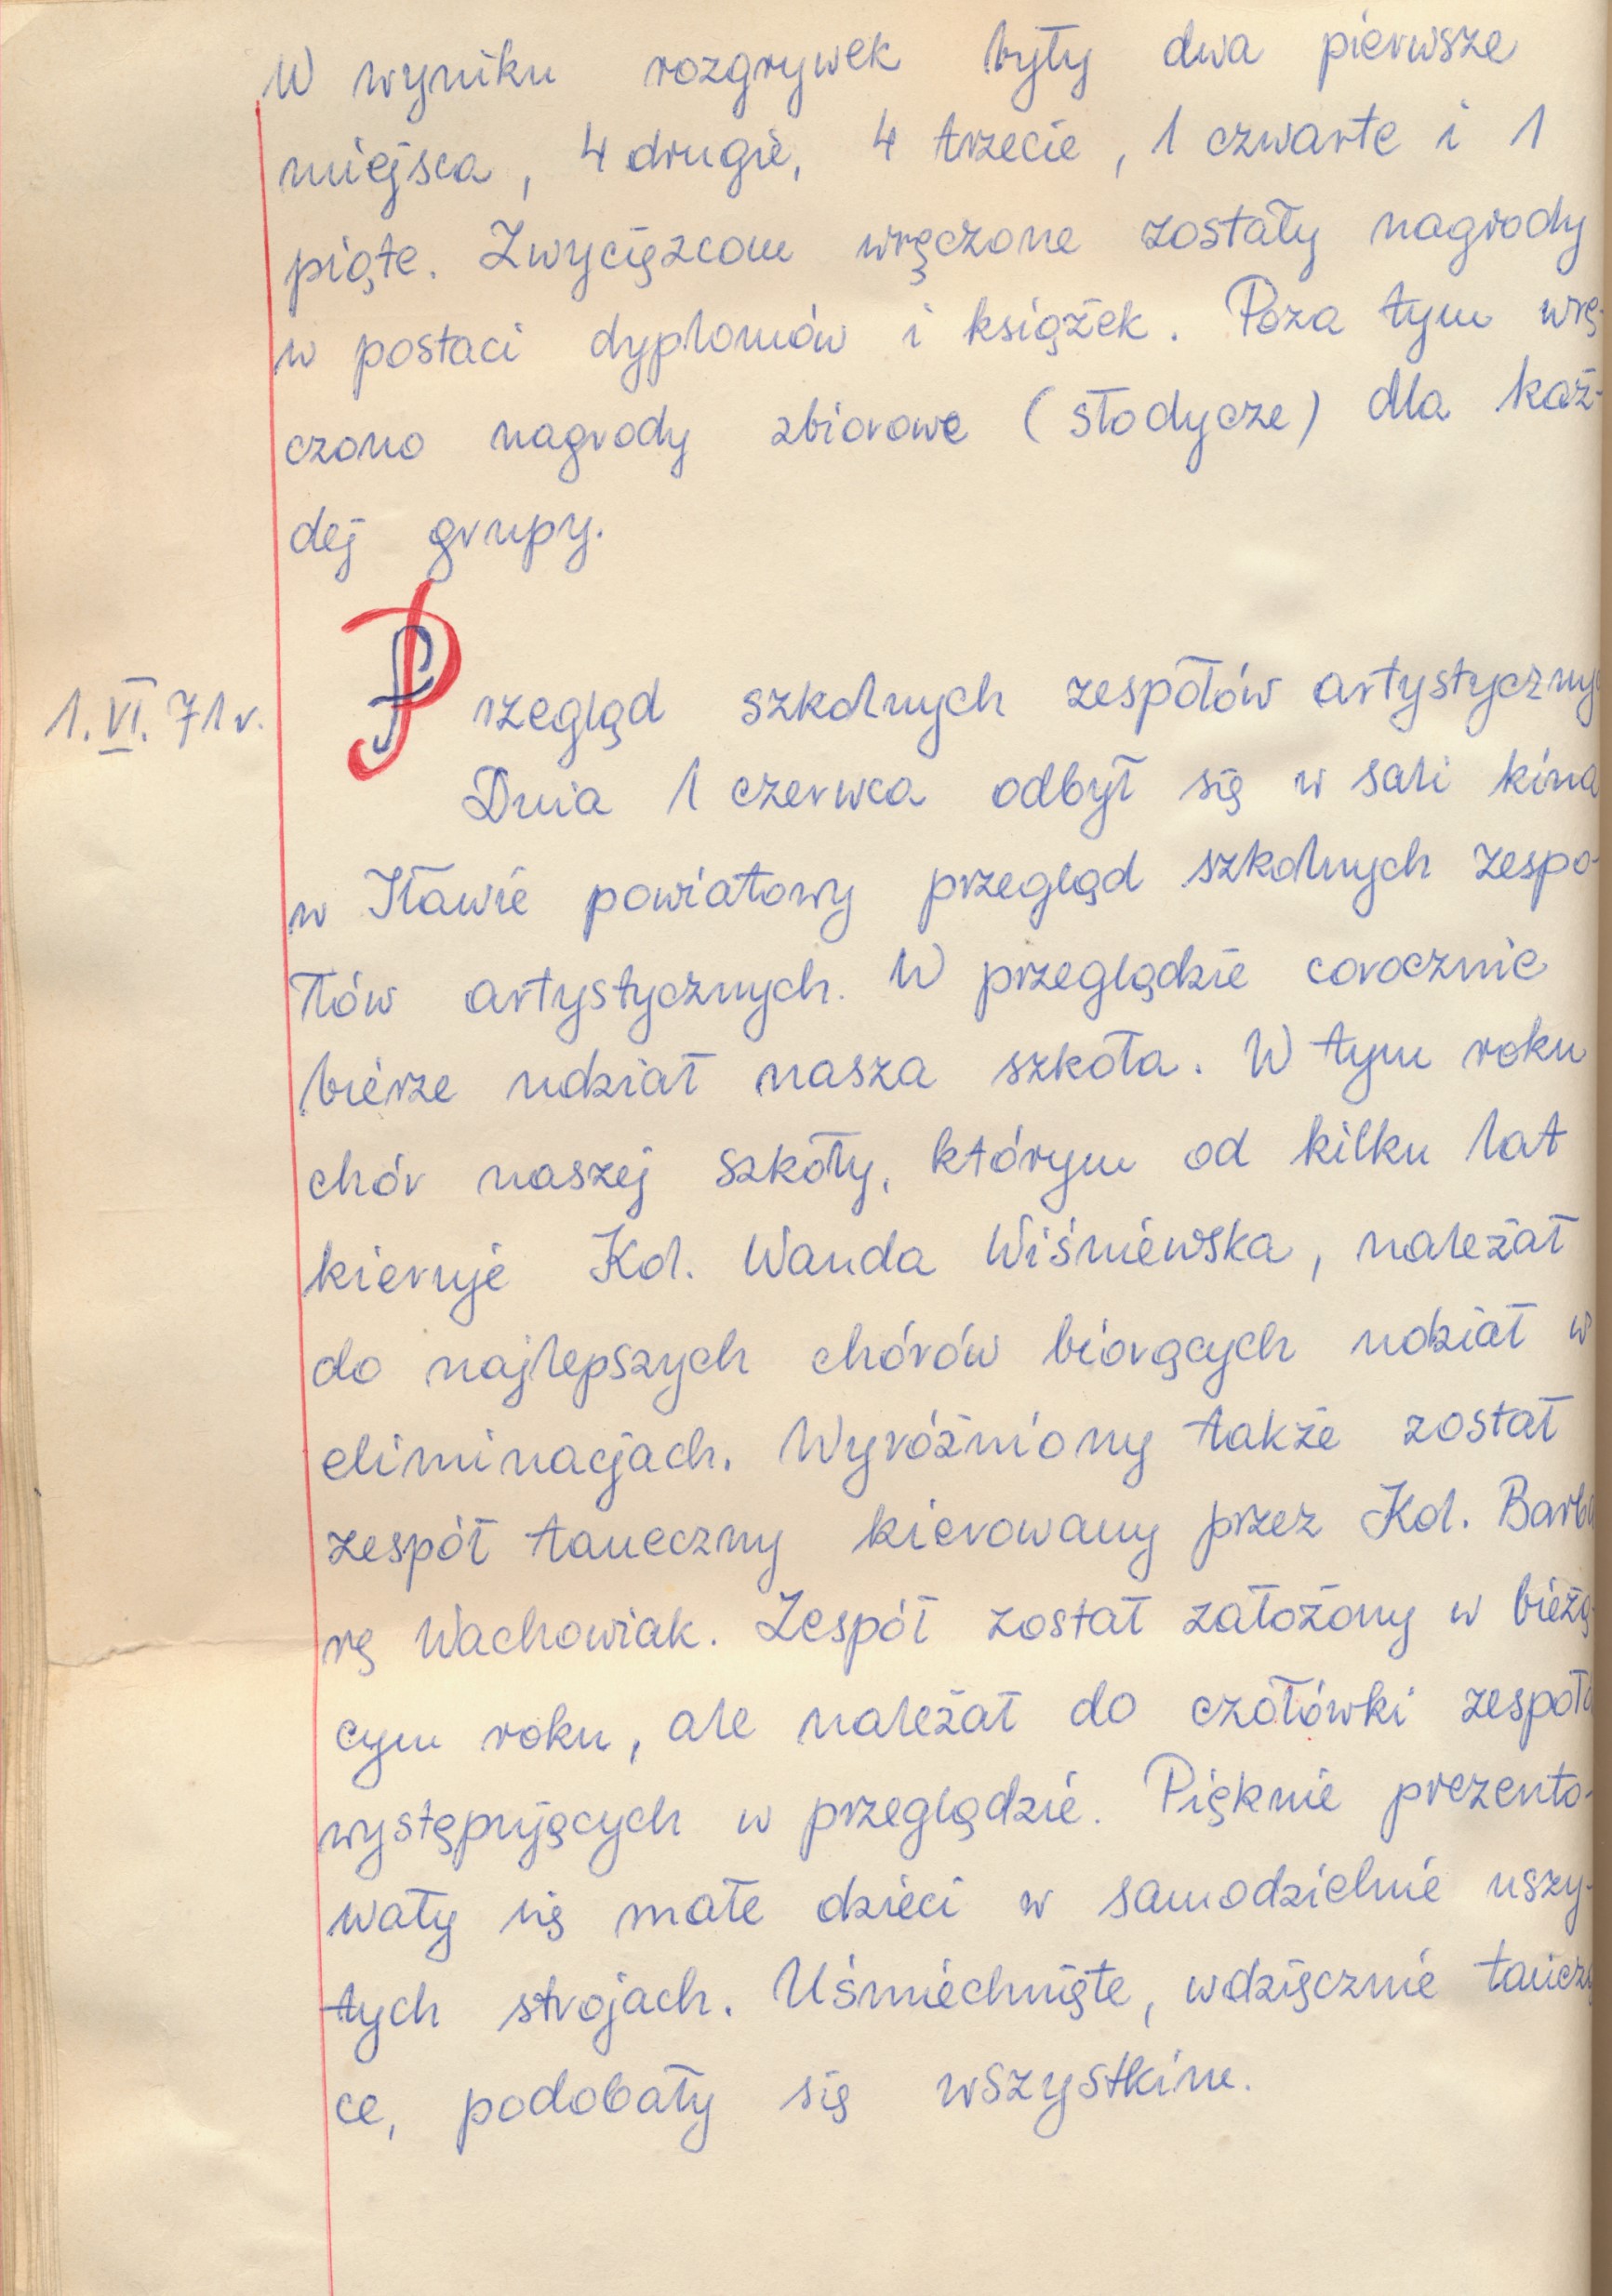 W wyniku rozgrywek były dwa pierwsze
miejsca, 4 drugie, 4 trzecie, 1 czwarte i 1
piąte. Zwycięzcom wręczone zostały nagrody
w postaci dyplomów i książek. Poza tym wrę-
czono nagrody zbiorowe (słodycze) dla każ-
dej grupy.
1. VI. 71 r.
Przegląd szkolnych zespołów artystyczny
Dnia 1 czerwca odbył się w sali kina
w Iławie powiatowy przegląd szkolnych zespo-
łów artystycznych. W przeglądzie corocznie
bierze udział nasza szkoła. W tym roku
chór naszej szkoły, którym od kilku lat
kieruje Kol. Wanda Wiśniewska, należał
do najlepszych chórów biorących udział w
eliminacjach. Wyróżniony także został
zespół taneczny kierowany przez Kol. Barba
rę Wachowiak. Zespół został założony w bieżą
cym roku, ale należał do czołówki zespołó
występujących w przeglądzie. Pięknie prezento-
wały się małe dzieci w samodzielnie uszy-
tych strojach. Uśmiechnięte, wdzięcznie tańczą
ce, podobały się wszystkim.